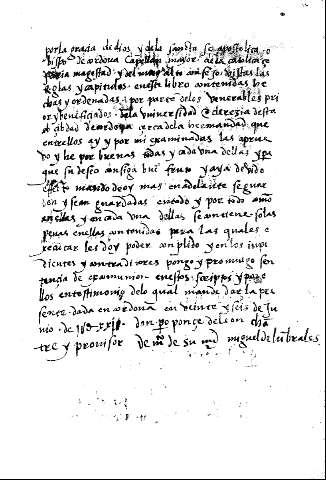 por la gracia de dios y de la sancta se apostolica
obispo de cordova capellan mayor de la catholica
magestad y del su consejo vistas las
Reglas y capitulos eneste libro contenidas he
chas y ordenadas por parte delos venerables pri
or y beneficiados dela universidad clerezia desta
cibdad de cordova cerca dela hermandad que
entrellos ay y por mi examinadas las aprue
vo y he por buenas todas y cada una dellas y pa
que su deseo consiga buen fruto y aya devido
effecto mando de oy mas en adelante se guar
den y sean guardadas en todo y por todo como
en ellas y en cada una dellas se contiene so las
penas en ellas contenidas para las quales e
xecutar les doy poder conplido y en los inpe
dientes y contradictores pongo y promulgo sen
tencia de excomunion en estos scriptos y por e
llos en testimonio delo qual mande dar la pre
sente dada en cordova en veynte y seis de Ju
nio de don po ponce de leon cha
tre y provisor de mo de su md miguel de lubrales